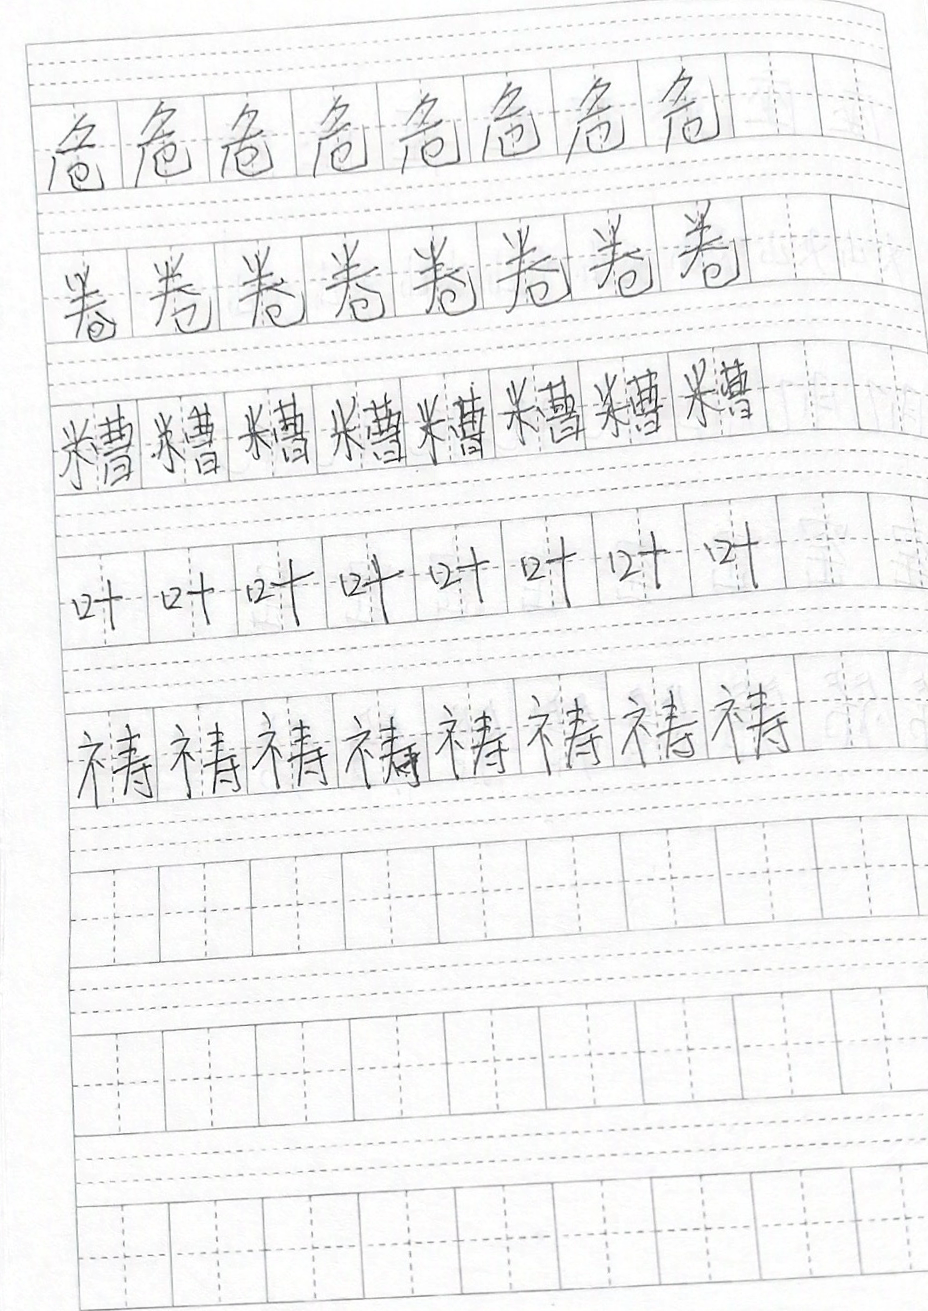 危危危危危危危危
卷卷卷卷卷卷卷卷
糟糟糟糟糟糟糟糟
叶叶叶叶叶叶叶叶
祷祷祷祷祷祷祷祷